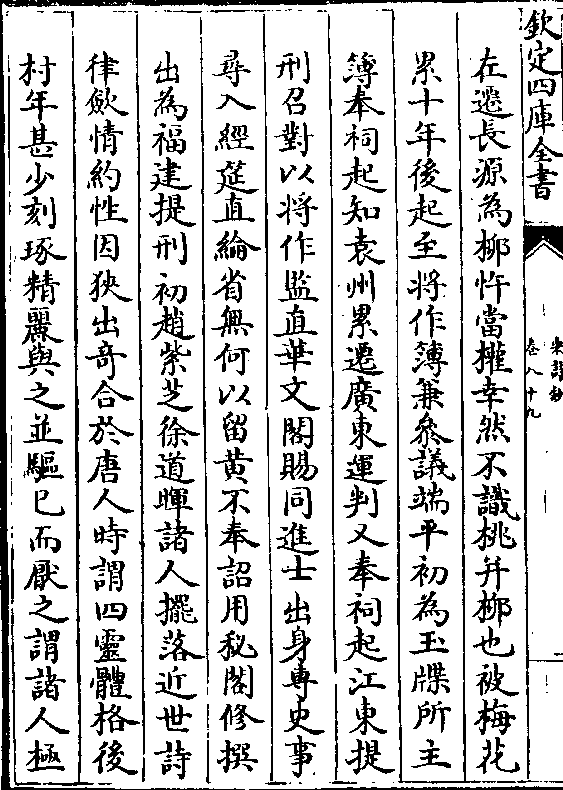 欽定四庫全書
宋詩鈔
卷八十九
在遷長源為柳忤當權幸然不識桃并柳也被梅花
累十年後起至將作簿兼叅議端平初為玉牒所主
簿奉祠起知袁州累遷廣東運判又奉祠起江東提
刑召對以將作監直華文閣賜同進士出身専史事
尋入經筵直綸省無何以留黄不奉詔用秘閣修撰
出為福建提刑初趙紫芝徐道暉諸人擺落近世詩
律歛情約性因狹出竒合於唐人時謂四靈體格後
村年甚少刻琢精麗與之並驅已而厭之謂諸人極